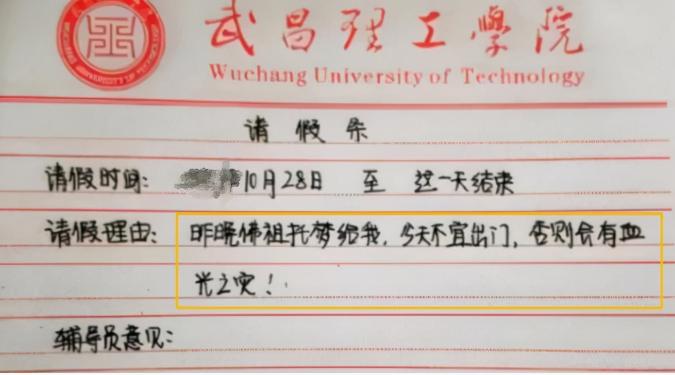 武昌理工學院
Wuchang University of Technology
请假条
请假时间: 10月28日 至 这一天结束
请假理由: 昨晚佛祖托梦给我,今天不宜出门,否则会有血
光之灾!
辅导员意见: